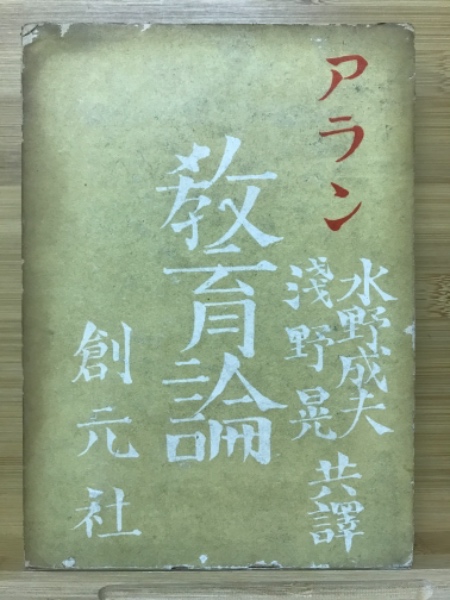 アラン
水野成夫
浅野晃
共譯
教育論
創元社